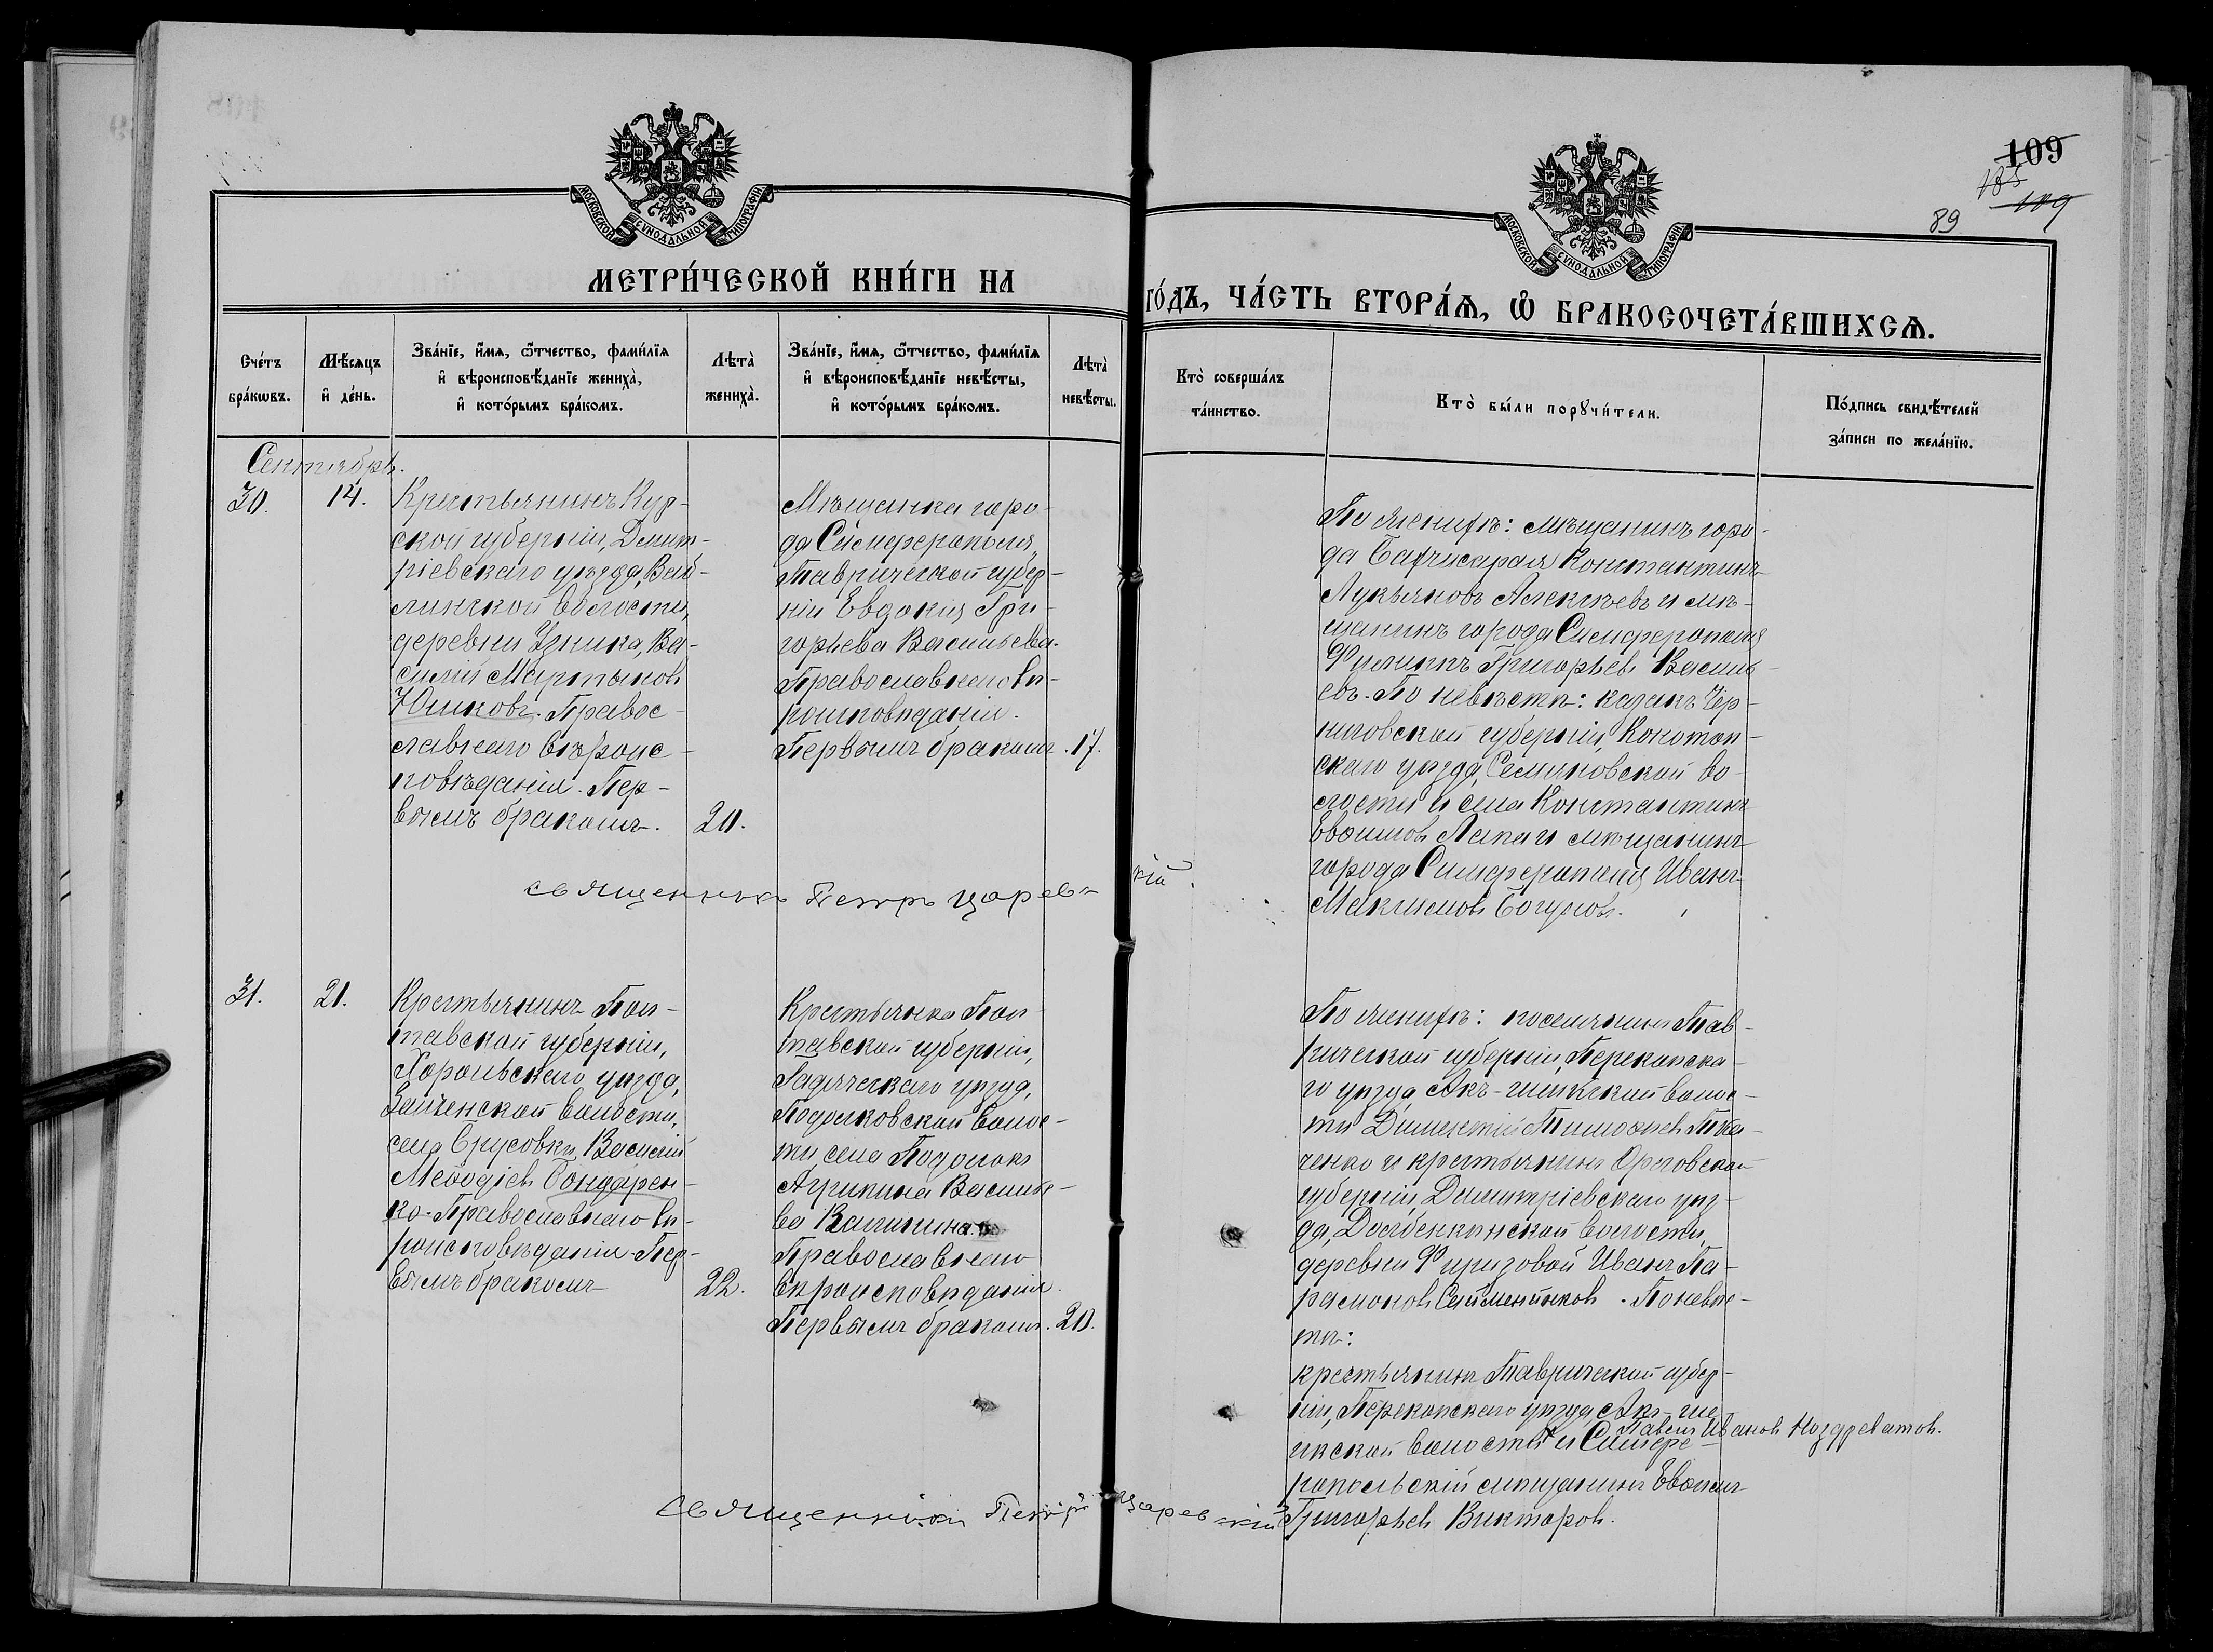 109
185
109
89
МОСКОВСКОЙ СѴНОДАЛЬНОЙ ТИПОГРАФІИ
МОСКОВСКОЙ СѴНОДАЛЬНОЙ ТИПОГРАФІИ
МЕТРИ́ЧЕСКОЙ КНИ́ГИ НА
ГО́ДЪ, ЧА́СТЬ ВТОРА́Ѧ, Ѡ҆ БРАКОСОЧЕТА́ВШИХСѦ.
Сче́тъ
бра́кѡвъ.
Мѣ́сѧцъ
и҆ де́нь.
Зва́нїе, и҆́мѧ, ѻ҆́тчество, фами́лїѧ
и҆ вѣроисповѣ́данїе жениха̀,
и҆ кото́рымъ бра́комъ.
Лѣта̀
жениха̀.
Зва́нїе, и҆́мѧ, ѻ҆́тчество, фами́лїѧ
и҆ вѣроисповѣ́данїе невѣ́сты,
и҆ кото́рымъ бра́комъ.
Лѣта̀
невѣ́сты.
Кто̀ соверша́лъ
та́инство.
Кто̀ бы́ли порꙋчи́тели.
По́дпись свидѣ́телей
за́писи по жела́нїю.
Сентябрь.
30.
14.
Крестьянинъ Кур-
ской губерніи, Димит-
ріевскаго уѣзда,
волости,
деревни Узника, Ва-
силій Мартыновъ
Юшковъ. Правос-
лавнаго вѣроис-
повѣданія. Пер-
вымъ бракомъ.
20.
Мѣщанка горо-
да Симферополя,
Таврической губер-
ніи Евдокія Гри-
горьева Васильева.
Православнаго вѣ-
роисповѣданія.
Первымъ бракомъ.
17.
По женихѣ: мѣщанинъ горо-
да Бахчисарая Константинъ
Лукьяновъ Алексѣевъ и мѣ-
щанинъ города Симферополя
Филиппъ Григорьевъ Василь-
евъ. По невѣстѣ: казакъ Чер-
ниговской губерніи, Конотоп-
скаго уѣзда, Семяновской во-
лости и села Константинъ
Лапа и мѣщанинъ
города Симферополя Иванъ
Максимовъ Богуновъ.
священникъ Петръ Царевскій.
31.
21.
Крестьянинъ Пол-
тавской губерніи,
Хорольскаго уѣзда,
Заиченской волости,
села Брусовки, Василій
Меѳодіевъ Бондарен-
ко. Православнаго вѣ-
роисповѣданія. Пер-
вымъ бракомъ
22.
Крестьянка Пол-
тавской губерніи,
Гадяческаго уѣзда,
Подолковской волос-
ти, села Подолокъ
Агрипина Василье-
ва Калинина.
Православнаго
вѣроисповѣданія.
Первымъ бракомъ.
20.
По женихѣ: поселянинъ Тав-
рической губерніи, Перекопска-
го уѣзда Акъ-шеикской волос-
ти Дометій Тимоѳеевъ Тка-
ченко и крестьянинъ Орловской
губерніи, Димитріевскаго уѣз-
да, Долбенкинской волости,
деревни Фризовой Иванъ Па-
рамоновъ Сейменниковъ. По невѣс-
тѣ:
крестьянинъ Таврической губер-
ніи, Перекопскаго уѣзда, Акъ-ше-
икской волости Павелъ Ивановъ Ноздреватовъ.
и Симфе-
ропольскій мѣщанинъ
Григорьевъ Викторовъ.
священникъ Петръ Царевскій